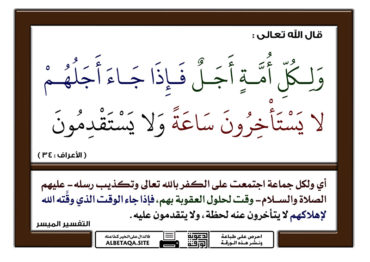 قال الله تعالى :
وَلِكُلِّ أُمَّةٍ أَجَلٌ فَإِذَا جَاءَ أَجَلُهُمْ
لا يَسْتَأْخِرُونَ سَاعَةً وَلا يَسْتَقْدِمُونَ
( الأعراف : ٣٤ )
أي ولكل جماعة اجتمعت على الكفر بالله تعالى وتكذيب رسله - عليهم
الصلاة والسلام - وقت لحلول العقوبة بهم، فإذا جاء الوقت الذي وقَّته الله
لإهلاكهم لا يتأخرون عنه لحظة ، ولا يتقدمون عليه .
التفسير الميسر
احرص على طباعة
ونشر هذه الورقة
فالدال على الخير كفاعله
ALBETAQA.SITE